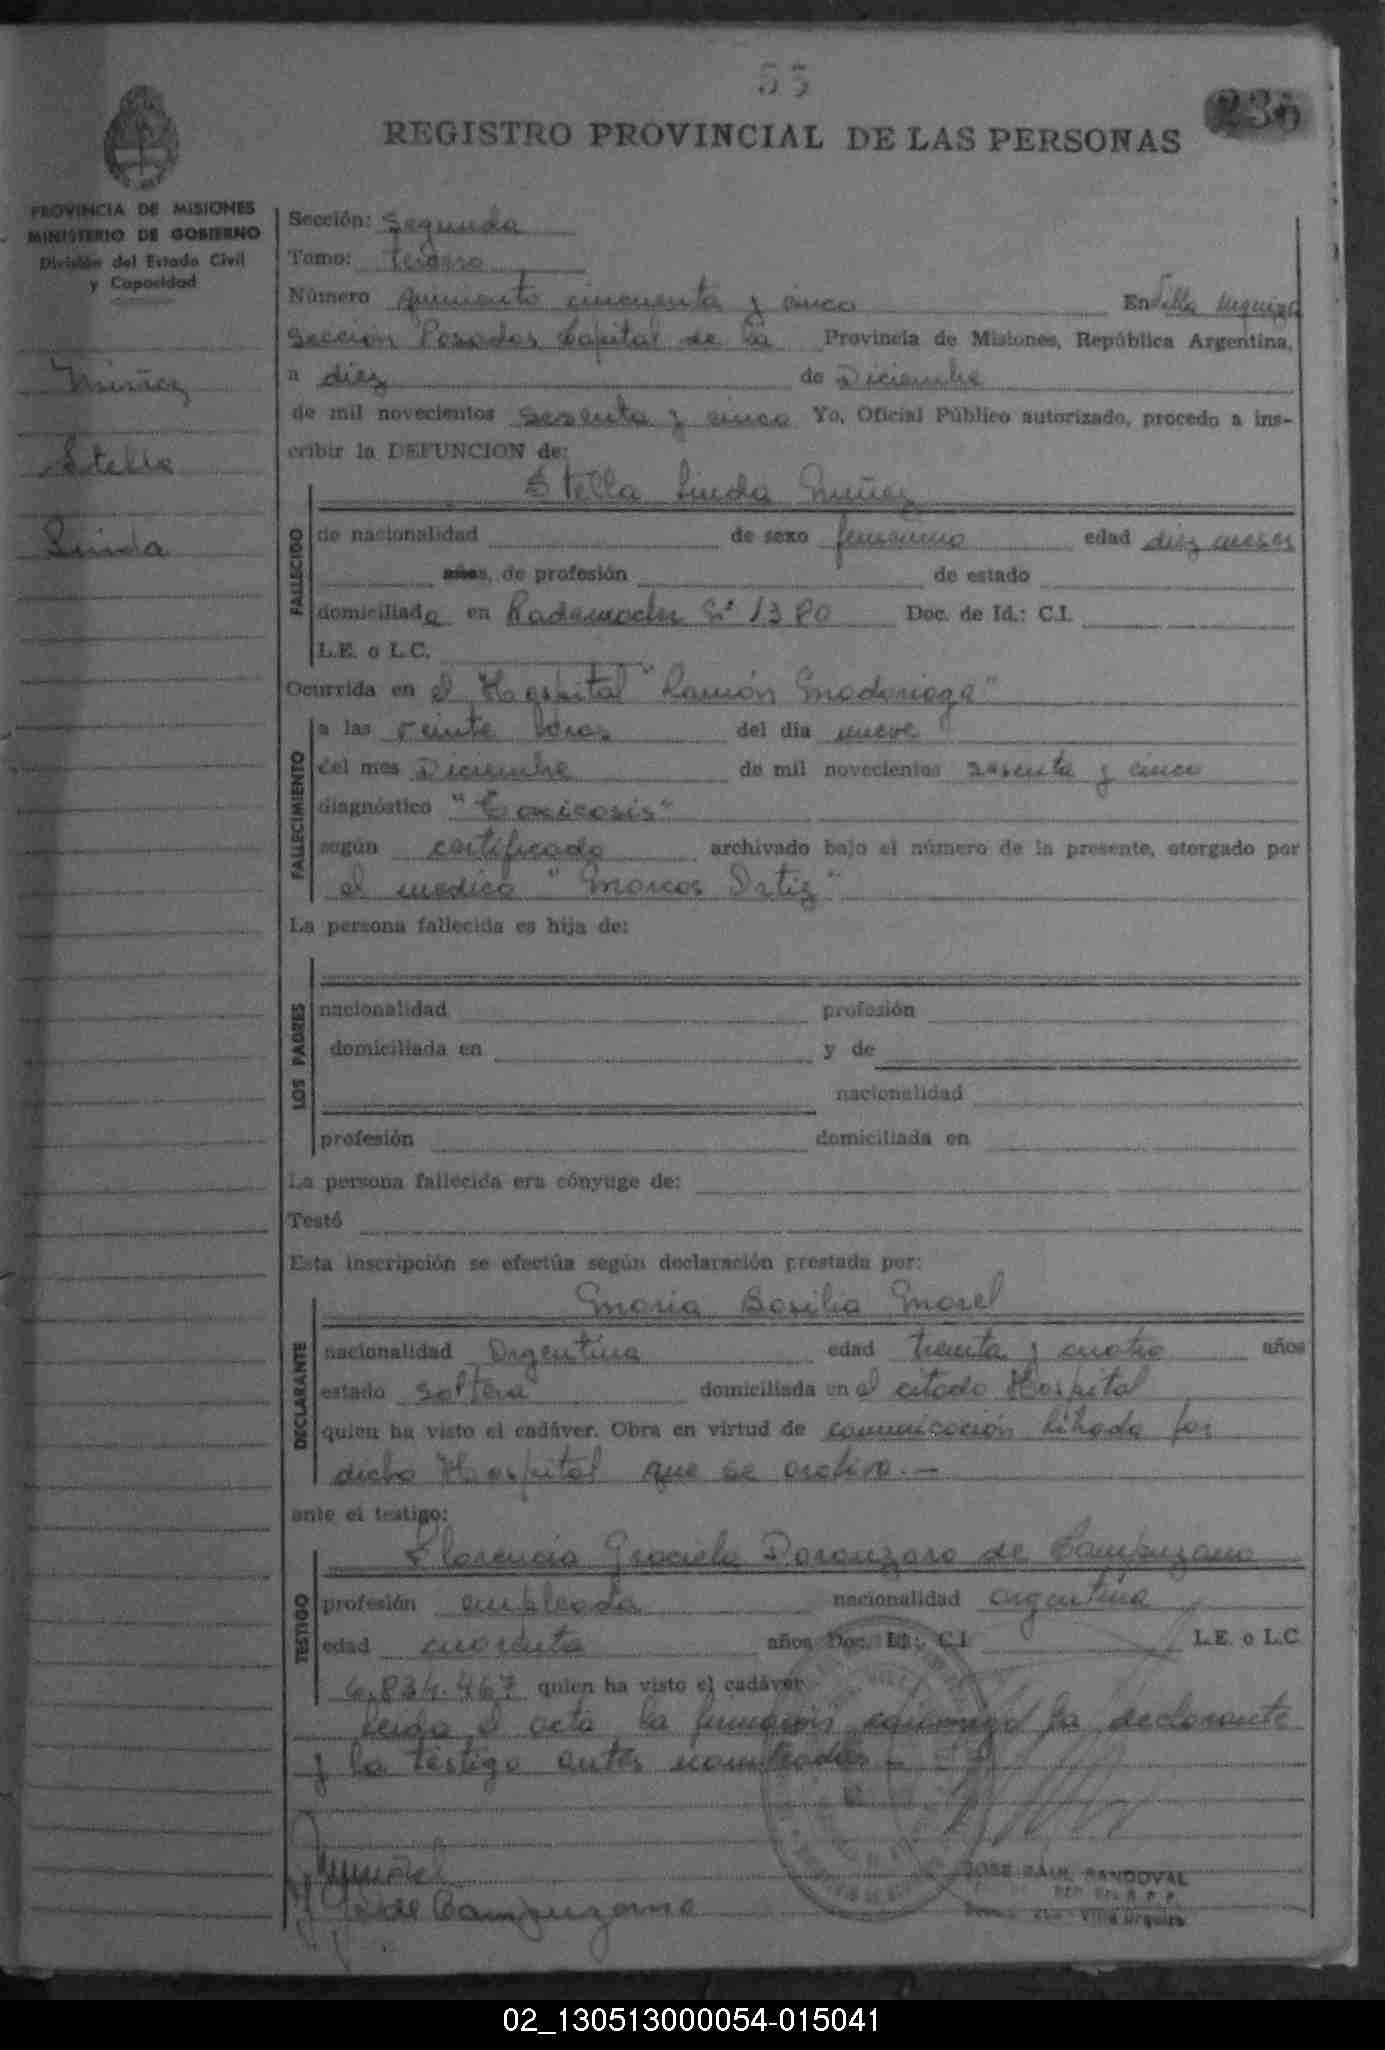 55
236
REGISTRO PROVINCIAL DE LAS PERSONAS
PROVINCIA DE MISIONES
MINISTERIO DE GOBIERNO
División del Estado Civil
y Capacidad
Muñez
Stella
Linda
Sección: Segunda
Tomo: Tercero
Número quiniento cincuenta y cinco En Villa Urquiza
Sección Posadas Capital de la Provincia de Misiones, República Argentina,
a diez de Diciembre
de mil novecientos sesenta y cinco Yo, Oficial Público autorizado, procedo a ins-
cribir la DEFUNCION de:
Stella Linda Muñez
FALLECIDO
de nacionalidad de sexo femenino edad diez meses
años, de profesión de estado
domiciliada en Rademacher Nº 1380 Doc. de Id.: C.I.
L.E. o L.C.
Ocurrida en el Hospital "Ramón Madariaga"
FALLECIMIENTO
a las veinte horas del día nueve
del mes Diciembre de mil novecientos sesenta y cinco
diagnóstico "Toxicosis"
según certificado archivado bajo el número de la presente, otorgado por
el medico "Marcos Ortiz"
La persona fallecida es hija de:
LOS PADRES
nacionalidad profesión
domiciliada en y de
nacionalidad
profesión domiciliada en
La persona fallecida era cónyuge de:
Testó
Esta inscripción se efectúa según declaración prestada por:
Maria Basilia Morel
DECLARANTE
nacionalidad Argentina edad treinta y cuatro años
estado soltera domiciliada en el citado Hospital
quien ha visto el cadáver. Obra en virtud de comunicación librada por
dicho Hospital que se archiva.—
ante el testigo:
Florencia Graciela de Campuzano
TESTIGO
profesión empleada nacionalidad argentina
edad cuarenta años Doc. Id.: C.I. L.E. o L.C.
6.834.467 quien ha visto el cadáver
Leida el acta la firman la declarante
y la testigo antes nombradas.—
de Campuzano
JOSE RAUL SANDOVAL
Villa Urquiza
02_130513000054-015041